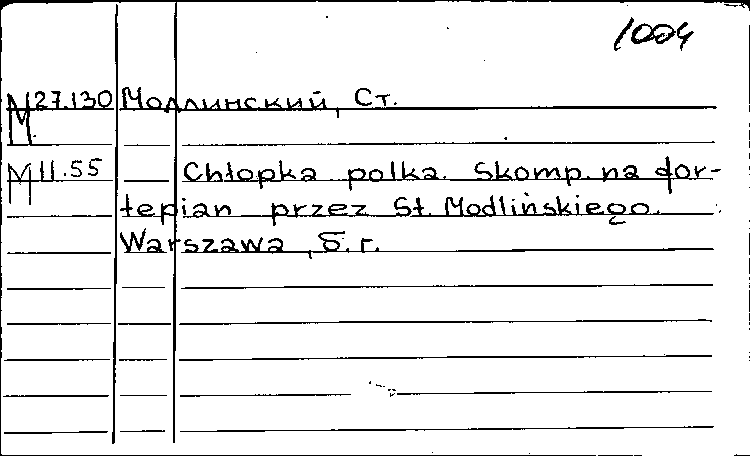 1004
М 27.130 Модлинский, Ст.
М 11.55 Chłopka polka. Skomp. na for-
tepian przez St. Modlińskiego.
Warszawa, б. г.